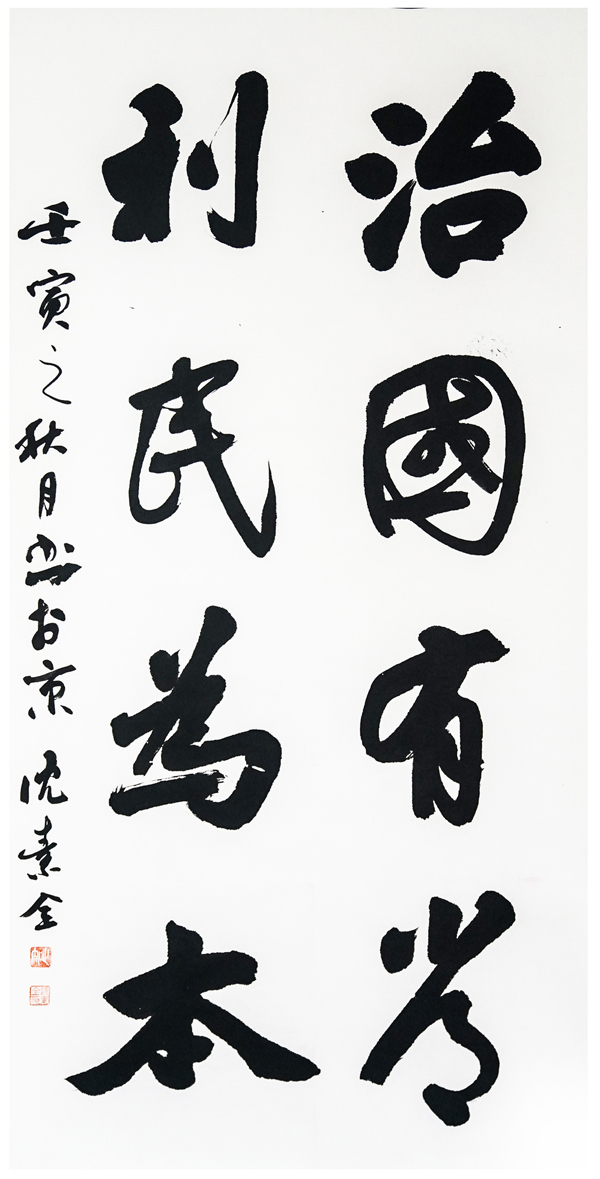 治國有常
利民為本
壬寅之秋月書於京 沈素金